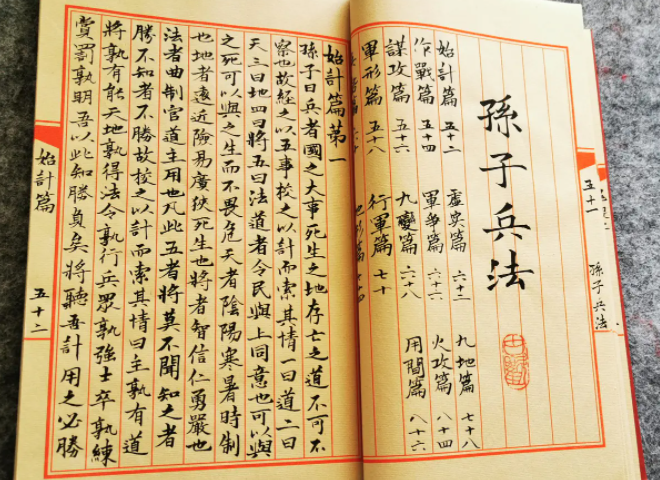 孫子兵法
五十一
孫子兵法
始計篇 五十二 虛實篇 六十二 九地篇 七十八
作戰篇 五十四 軍爭篇 火攻篇 八十四
謀攻篇 五十六 九變篇 六十八 用間篇 八十六
軍形篇 五十八 行軍篇 七十
始計篇第一
孫子曰兵者國之大事死生之地存亡之道不可不
察也故經之以五事校之以計而索其情一曰道二曰
天三曰地四曰將五曰法道者令民與上同意也可以與
之死可以與之生而不畏危天者陰陽寒暑時制
也地者遠近險易廣狹死生也將者智信仁勇嚴也
法者曲制官道主用也凡此五者將莫不聞知之者
勝不知者不勝故校之以計而索其情曰主孰有道
將孰有能天地孰得法令孰行兵眾孰強士卒孰練
賞罰孰明吾以此知勝負矣將聽吾計用之必勝
始計篇
五十二